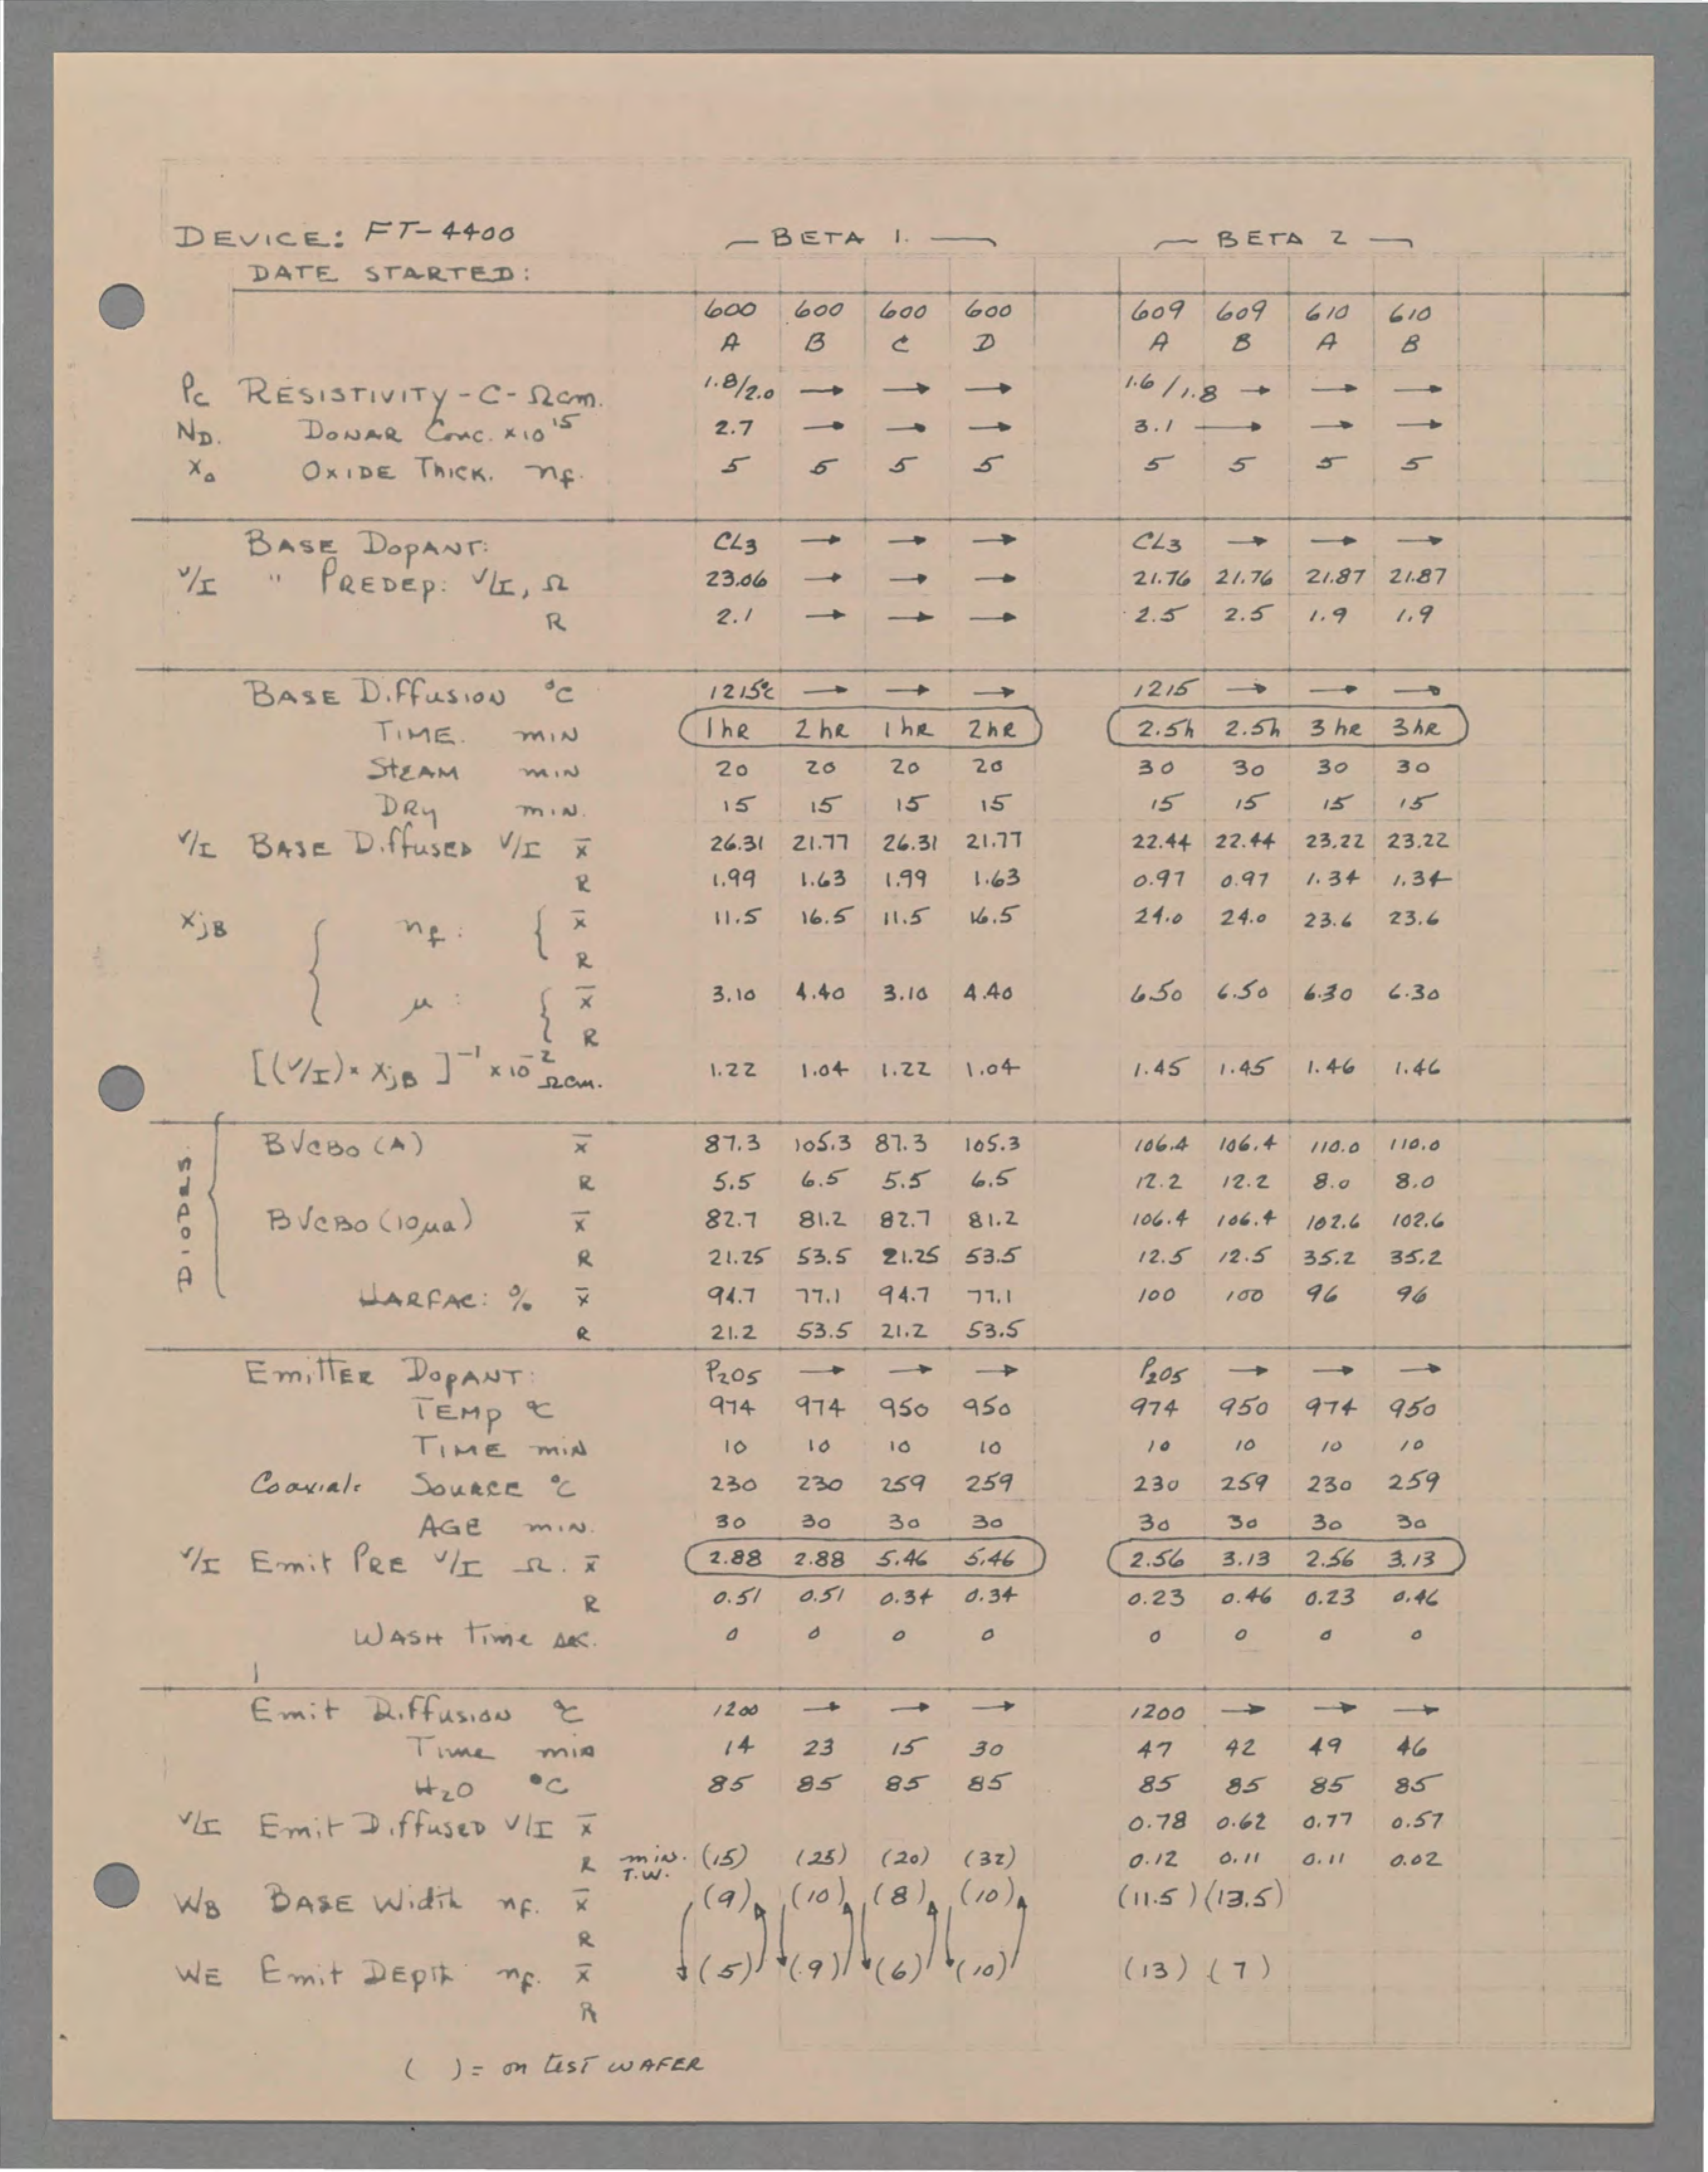 DEVICE: FT-4400 — BETA 1. — — BETA 2 —
DATE STARTED:
600 600 600 600 609 609 610 610
A B C D A B A B
Pc RESISTIVITY-C-Ωcm. 1.8/2.0 → → → 1.6/1.8 → → →
ND. DONAR Conc. x10^15 2.7 → → → 3.1 → → →
Xo OXIDE THICK. nf. 5 5 5 5 5 5 5 5
BASE DOPANT: CL3 → → → CL3 → → →
V/I " PREDEP: V/I, Ω 23.06 → → → 21.76 21.76 21.87 21.87
R 2.1 → → → 2.5 2.5 1.9 1.9
BASE Diffusion °C 1215°c → → → 1215 → → →
TIME. min 1hr 2hr 1hr 2hr 2.5h 2.5h 3hr 3hr
STEAM min 20 20 20 20 30 30 30 30
DRY min. 15 15 15 15 15 15 15 15
V/I BASE Diffused V/I x̄ 26.31 21.77 26.31 21.77 22.44 22.44 23.22 23.22
R 1.99 1.63 1.99 1.63 0.97 0.97 1.34 1.34
XjB nf: x̄ 11.5 16.5 11.5 16.5 24.0 24.0 23.6 23.6
R
μ: x̄ 3.10 4.40 3.10 4.40 6.50 6.50 6.30 6.30
R
[(V/I)×XjB]^-1 ×10^-2 Ωcm. 1.22 1.04 1.22 1.04 1.45 1.45 1.46 1.46
DIODES.
BVCBO (A) x̄ 87.3 105.3 87.3 105.3 106.4 106.4 110.0 110.0
R 5.5 6.5 5.5 6.5 12.2 12.2 8.0 8.0
BVCBO (10μa) x̄ 82.7 81.2 82.7 81.2 106.4 106.4 102.6 102.6
R 21.25 53.5 21.25 53.5 12.5 12.5 35.2 35.2
HARFAC: % x̄ 94.7 77.1 94.7 77.1 100 100 96 96
R 21.2 53.5 21.2 53.5
EmitTER DOPANT: P2O5 → → → P2O5 → → →
TEMP °C 974 974 950 950 974 950 974 950
TIME min 10 10 10 10 10 10 10 10
Coaxial: SOURCE °C 230 230 259 259 230 259 230 259
AGE min. 30 30 30 30 30 30 30 30
V/I Emit PRE V/I Ω. x̄ 2.88 2.88 5.46 5.46 2.56 3.13 2.56 3.13
R 0.51 0.51 0.34 0.34 0.23 0.46 0.23 0.46
WASH Time sec. 0 0 0 0 0 0 0 0
Emit Diffusion °C 1200 → → → 1200 → → →
Time min 14 23 15 30 47 42 49 46
H2O °C 85 85 85 85 85 85 85 85
V/I Emit Diffused V/I x̄ 0.78 0.62 0.77 0.57
R min. T.W. (15) (25) (20) (32) 0.12 0.11 0.11 0.02
WB BASE Width nf. x̄ (9) (10) (8) (10) (11.5) (13.5)
R
WE Emit DEPth nf. x̄ (5) (9) (6) (10) (13) (7)
R
( ) = on test WAFER